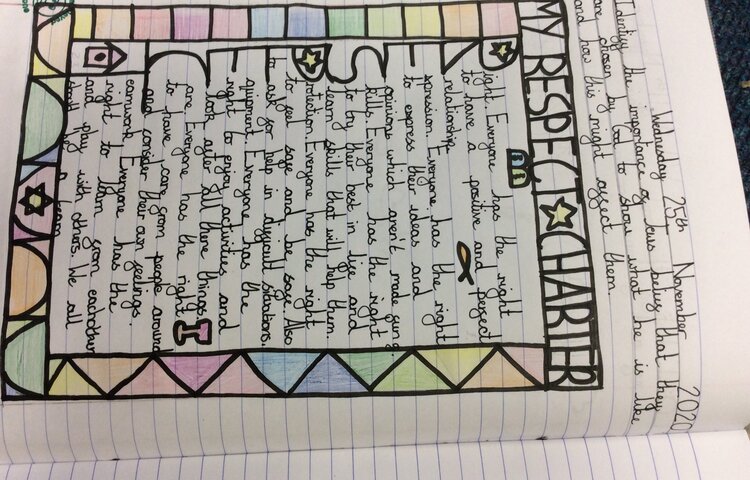 Wednesday 25th November 2020
Identify the importance of Jews belief that they
are chosen by God to show what he is like
and how this might affect them.
MY RESPECT CHARTER
Right. Everyone has the right
to have a positive and perfect
relationship.
Expression. Everyone has the right
to express their ideas and
opinions which aren't made
Skills. Everyone has the right
to try their best in life and
learn skills that will help them.
Protection. Everyone has the right
to get safe and be safe. Also
to ask for help in difficult situations.
Equipment. Everyone has the
right to enjoy activities and
look after all there things.
Care. Everyone has the right
to have care from people around
and consider their own feelings.
Teamwork. Everyone has the
right to learn from eachother
and play with others. We all
a team.